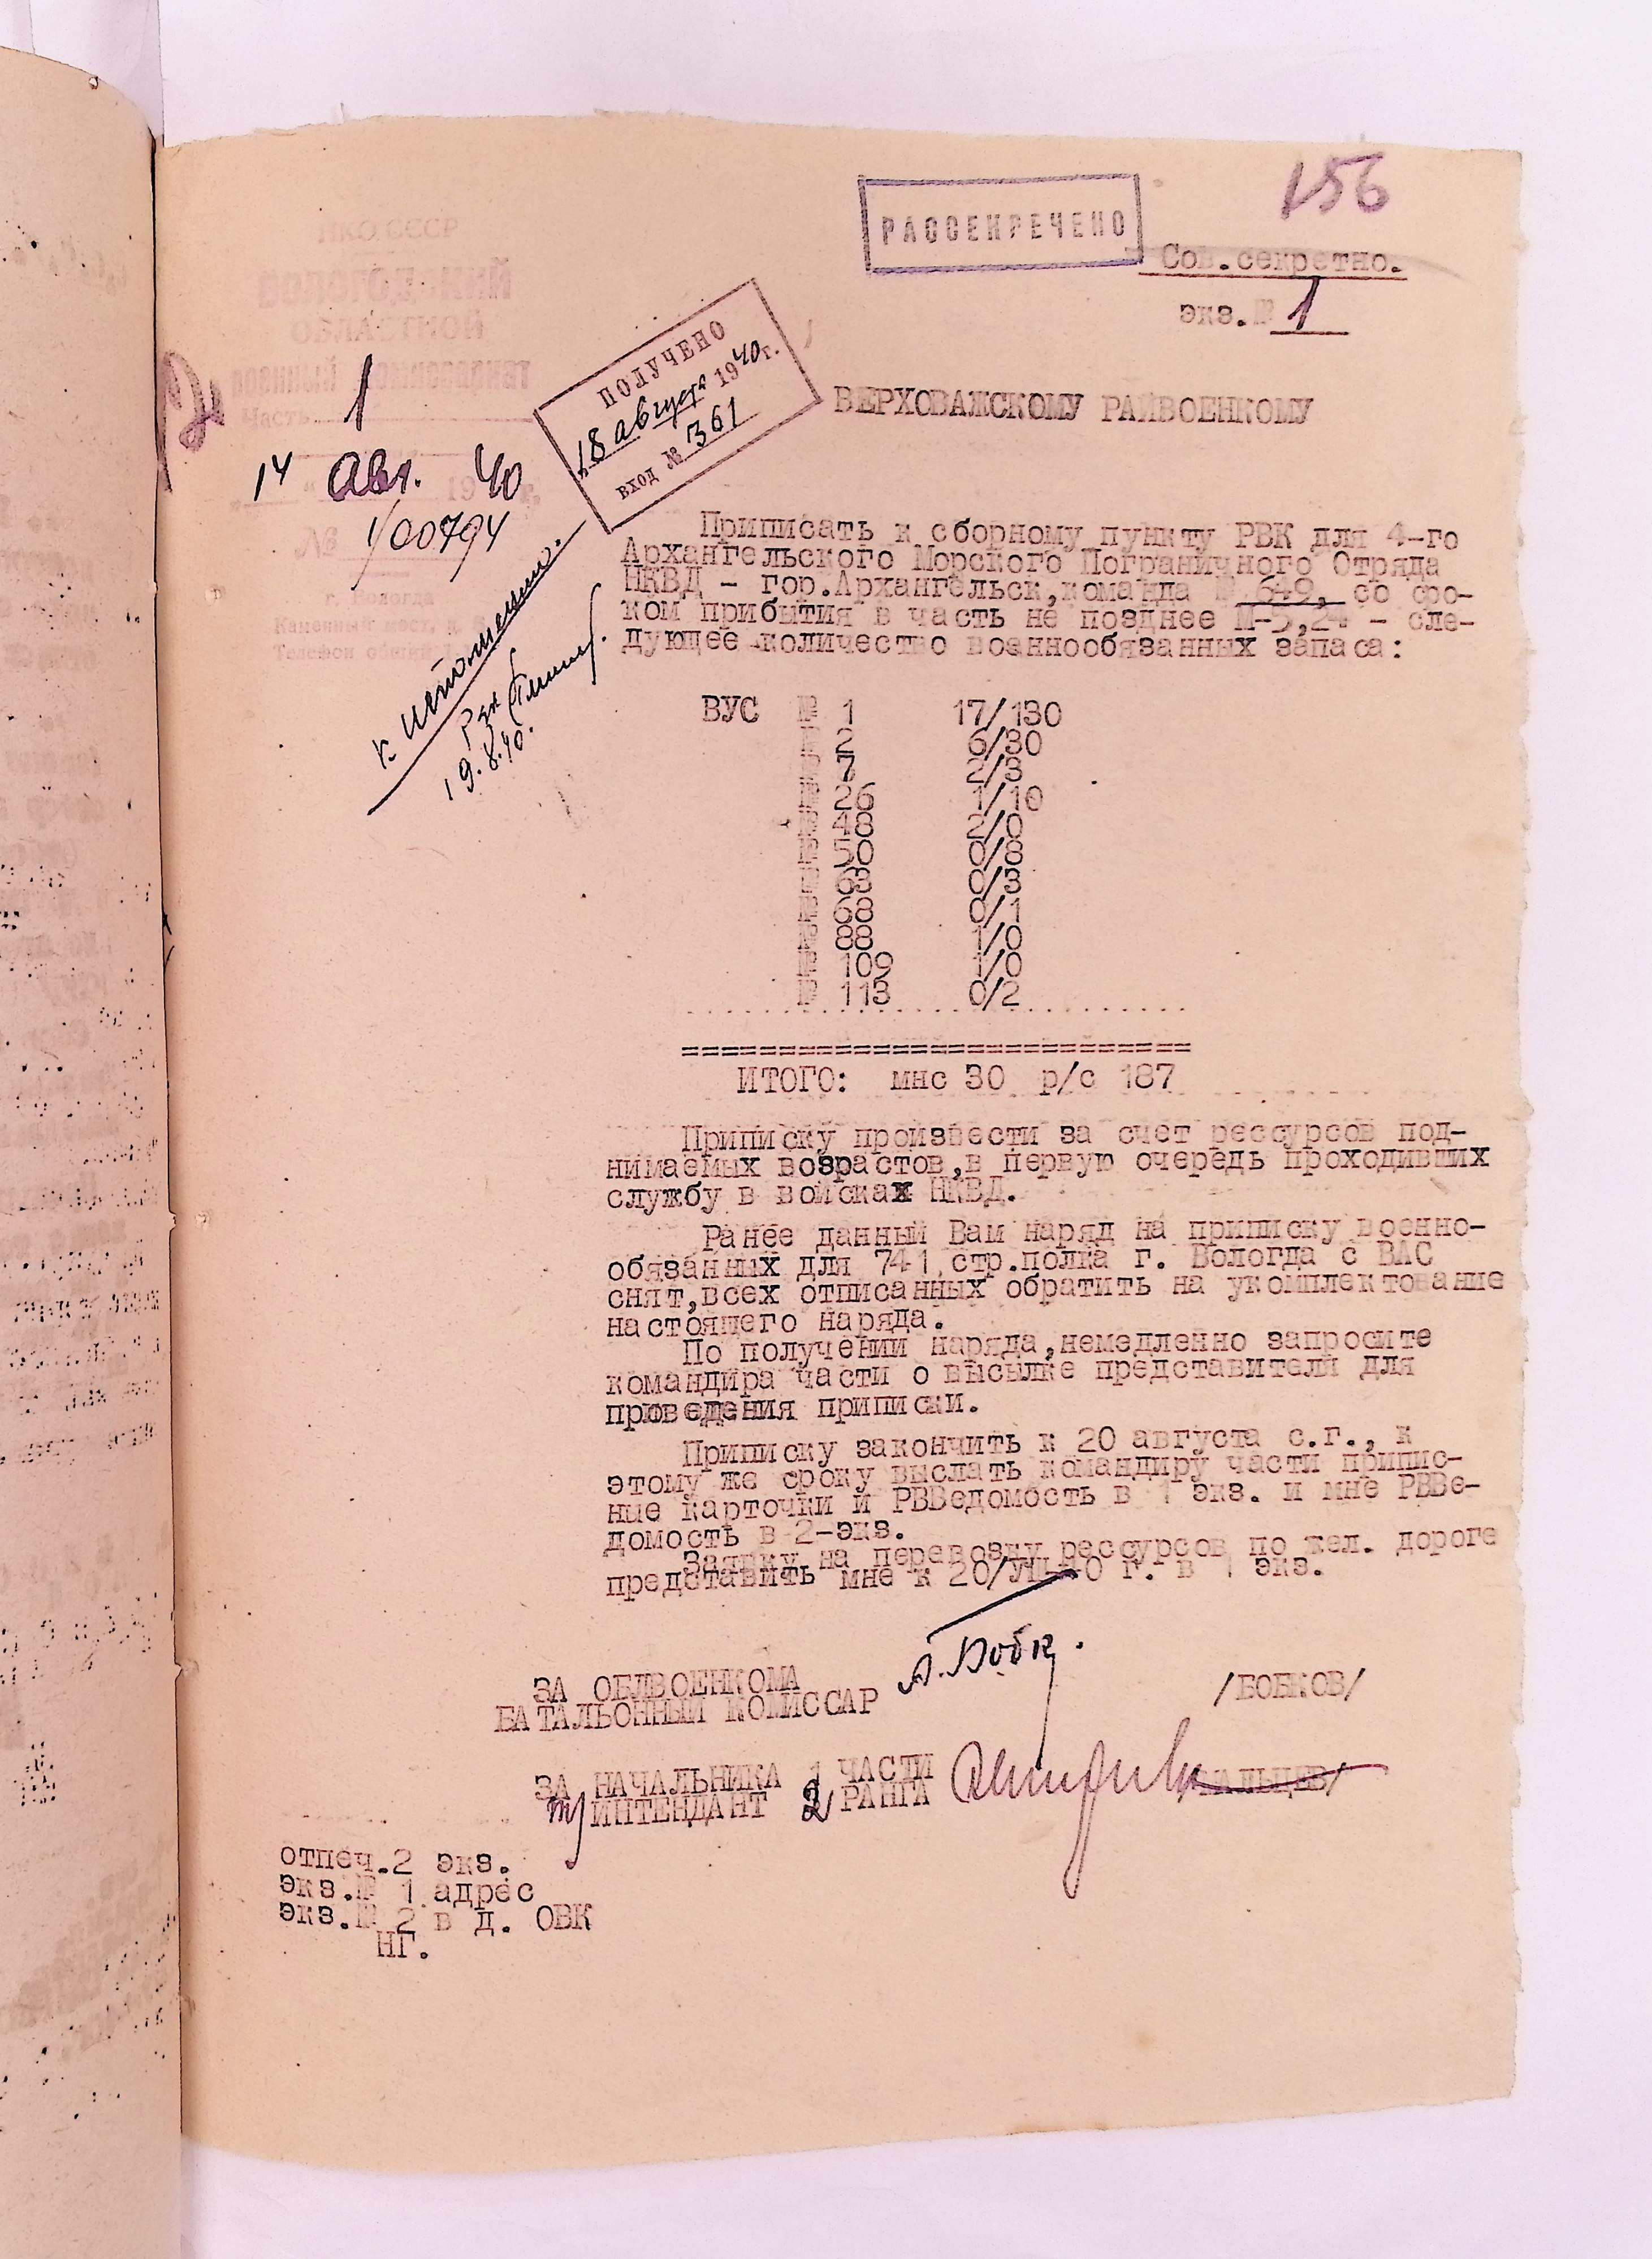 156
РАССЕКРЕЧЕНО
Сов.секретно.
экз.№ 1
НКО СССР
ВОЛОГОДСКИЙ
ОБЛАСТНОЙ
ВОЕННЫЙ КОМИССАРИАТ
Часть 1
14 Авг. 1940 г.
№ 1/00794
г. Вологда
Каменный мост, д.
Телефон общий
ПОЛУЧЕНО
18 августа 1940 г.
вход № 361
к исполнению.
19.8.40.
ВЕРХОВАЖСКОМУ РАЙВОЕНКОМУ
Приписать к сборному пункту РВК для 4-го
Архангельского Морского Пограничного Отряда
НКВД - гор.Архангельск,команда № 649, со сро-
ком прибытия в часть не позднее М-5,24 - сле-
дующее количество военнообязанных запаса:
ВУС № 1 17/130
№ 2 6/30
№ 7 2/3
№ 26 1/10
№ 48 2/0
№ 50 0/8
№ 63 0/3
№ 68 0/1
№ 88 1/0
№ 109 1/0
№ 113 0/2
ИТОГО: мнс 30 р/с 187
Приписку произвести за счет рессурсов под-
нимаемых возрастов,в первую очередь проходивших
службу в войсках НКВД.
Ранее данный Вам наряд на приписку военно-
обязанных для 741 стр.полка г. Вологда с ВАС
снят,всех отписанных обратить на укомплектование
настоящего наряда.
По получении наряда,немедленно запросите
командира части о высылке представителя для
проведения приписки.
Приписку закончить к 20 августа с.г., к
этому же сроку выслать командиру части припис-
ные карточки и РВВедомость в 1 экз. и мне РВВе-
домость в 2-экз.
Заявку на перевозку рессурсов по жел. дороге
представить мне к 20/УШ-40 г. в 1 экз.
ЗА ОБЛВОЕНКОМА
БАТАЛЬОННЫЙ КОМИССАР /БОБКОВ/
ЗА НАЧАЛЬНИКА 1 ЧАСТИ
т/ ИНТЕНДАНТ 2 РАНГА
отпеч.2 экз.
экз.№ 1 адрес
экз.№ 2 в д. ОВК
НГ.